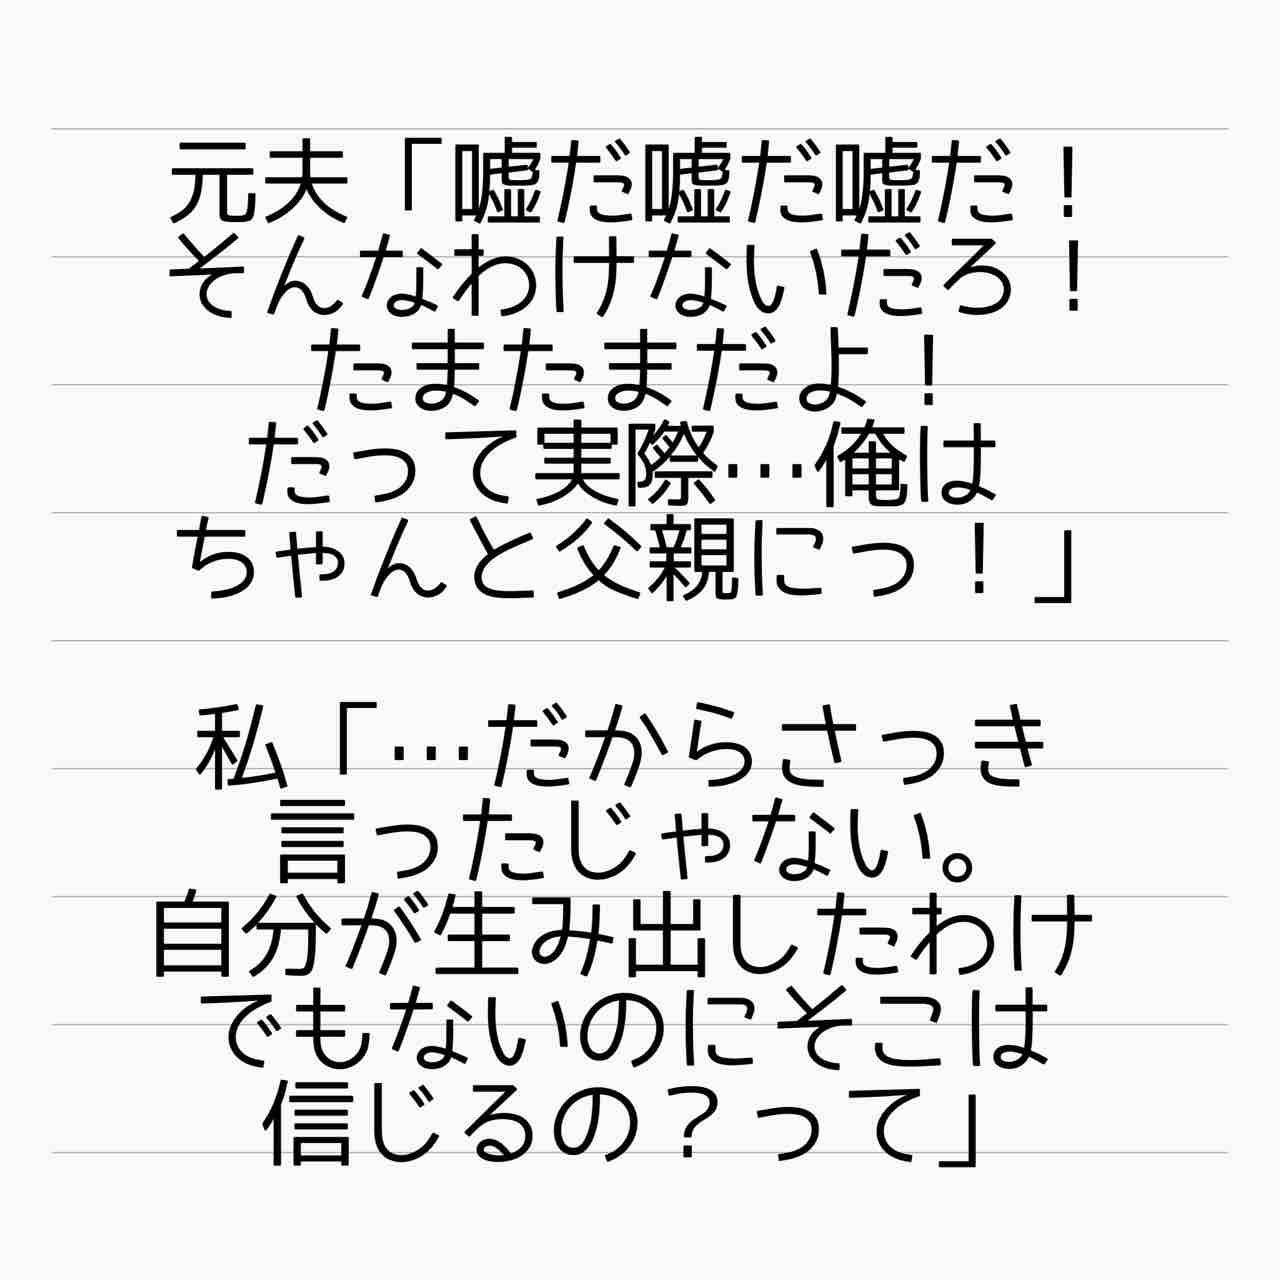 元夫「嘘だ嘘だ嘘だ！
そんなわけないだろ！
たまたまだよ！
だって実際…俺は
ちゃんと父親にっ！」
私「…だからさっき
言ったじゃない。
自分が生み出したわけ
でもないのにそこは
信じるの？って」